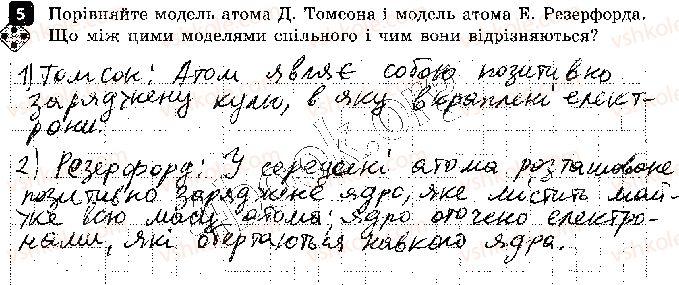 5 Порівняйте модель атома Д. Томсона і модель атома Е. Резерфорда.
Що між цими моделями спільного і чим вони відрізняються?
1) Томсон: Атом являє собою позитивно
заряджену кулю, в яку вкраплені елект-
рони.
2) Резерфорд: У середині атома розташоване
позитивно заряджене ядро, яке містить май-
же всю масу атома; ядро оточено електро-
нами, які обертаються навколо ядра.